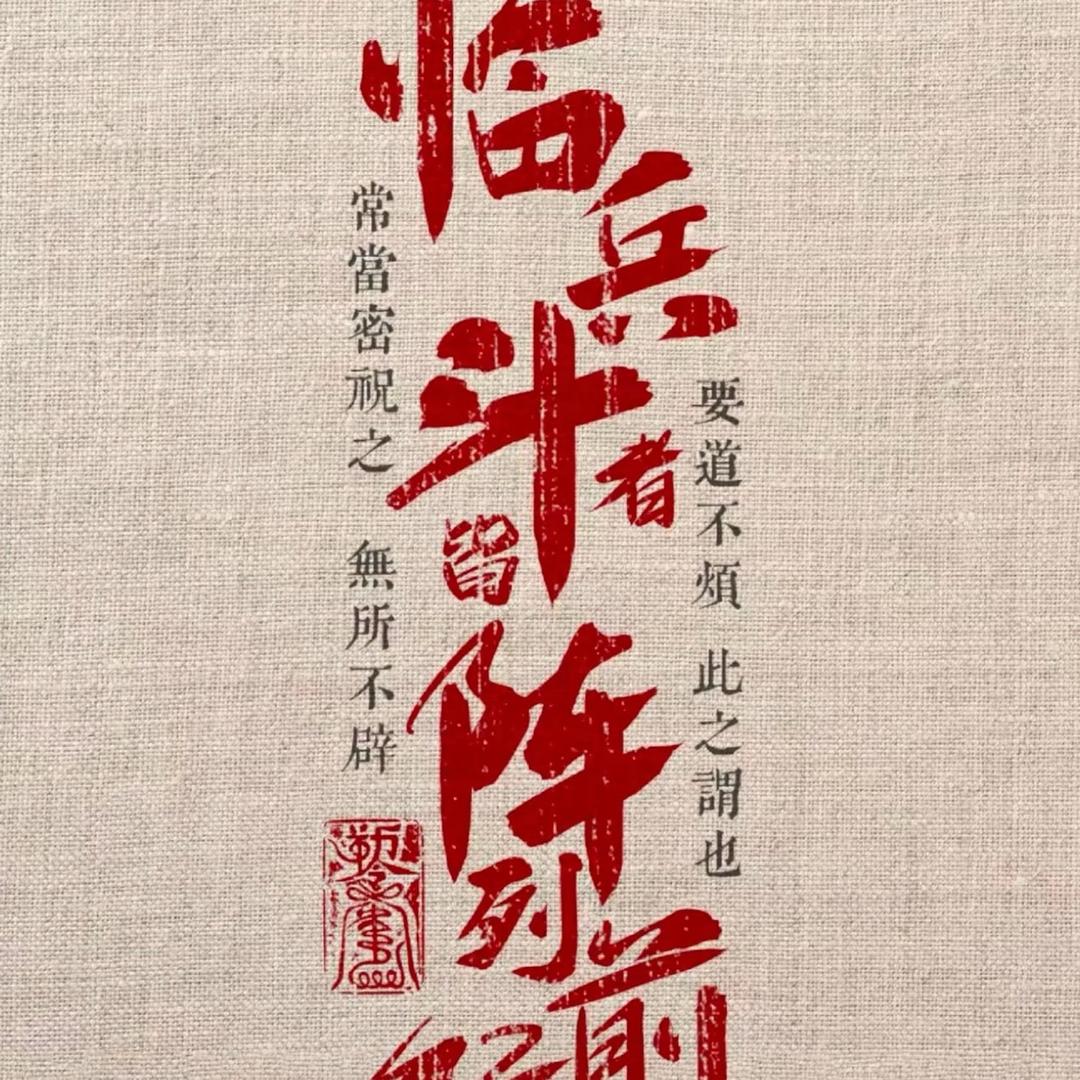 临兵斗者皆阵列前
常當密祝之 無所不辟
要道不煩 此之謂也